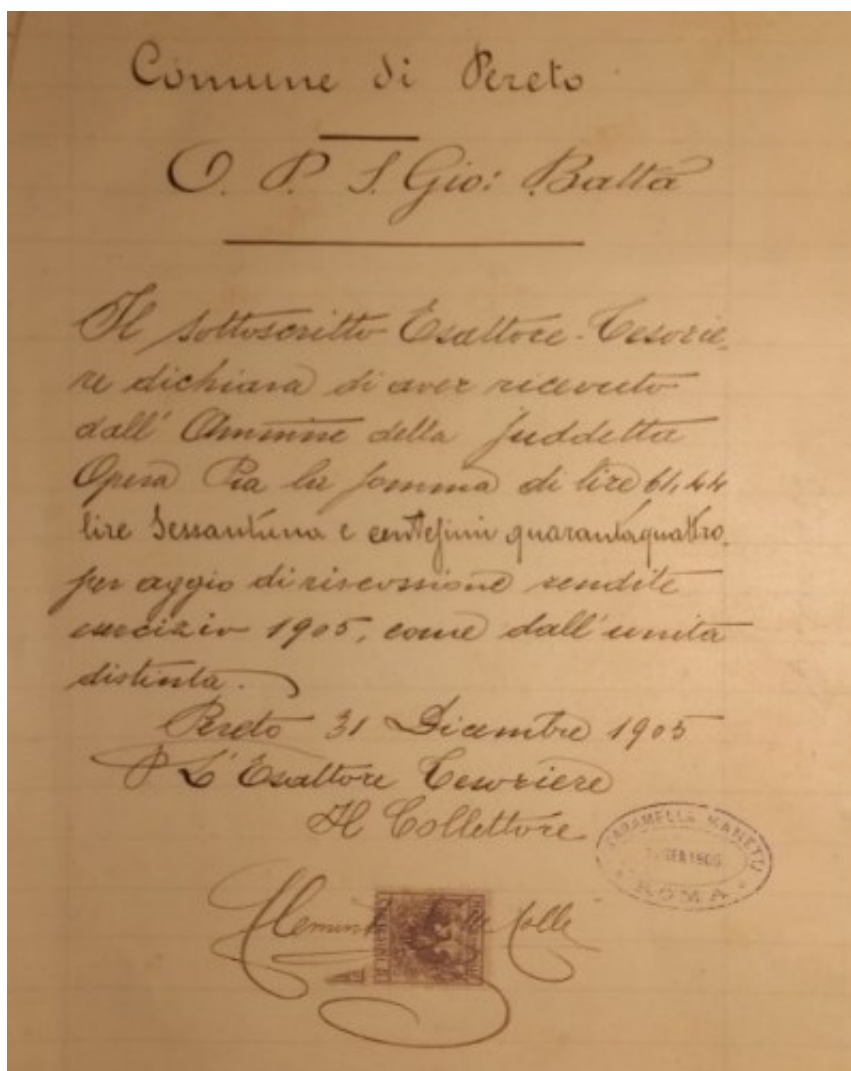 Comune di Pereto
O. P. S. Gio: Batta
Il sottoscritto Esattore-Tesorie-
re dichiara di aver ricevuto
dall' Ammine della suddetta
Opera Pia la somma di lire 61,44
lire Sessantuna e centesimi quarantaquattro.
per aggio di riscossione rendite
esercizio 1905, come dall'unita
distinta.
Pereto 31 Dicembre 1905
P L'Esattore Tesoriere
Il Collettore
MANETTI
ROMA